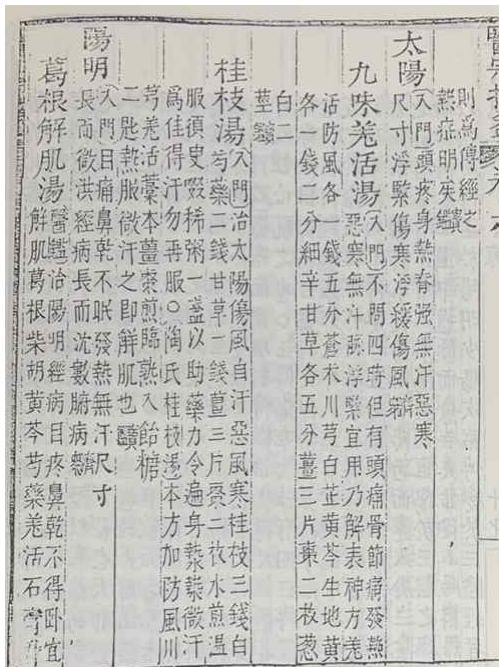 則爲傳經之
熱症明矣
太陽
(入門)頭疼身熱脊强無汗惡寒
尺寸浮緊傷寒浮緩傷風
九味羌活湯
(入門)不問四時但有頭痛骨節痛發熱
惡寒無汗脉浮緊宜用乃解表神方羌
活防風各一錢五分蒼朮川芎白芷黃芩生地黃
各一錢二分細辛甘草各五分薑三片棗二枚葱
白二
莖
桂枝湯
(入門)治太陽傷風自汗惡風寒桂枝三錢白
芍藥二錢甘草一錢薑三片棗二枚水煎溫
服須臾啜稀粥一盞以助藥力令遍身漐漐微汗
爲佳得汗勿再服○陶氏桂枝湯本方加防風川
芎羌活藁本薑棗煎臨熟入飴糖
二匙熱服微汗之卽解肌也
陽明
(入門)目痛鼻乾不眠發熱無汗尺寸
長而微洪經病長而沈數腑病
葛根解肌湯
醫鑑治陽明經病目疼鼻乾不得臥宜
解肌葛根柴胡黃芩芍藥羌活石膏升